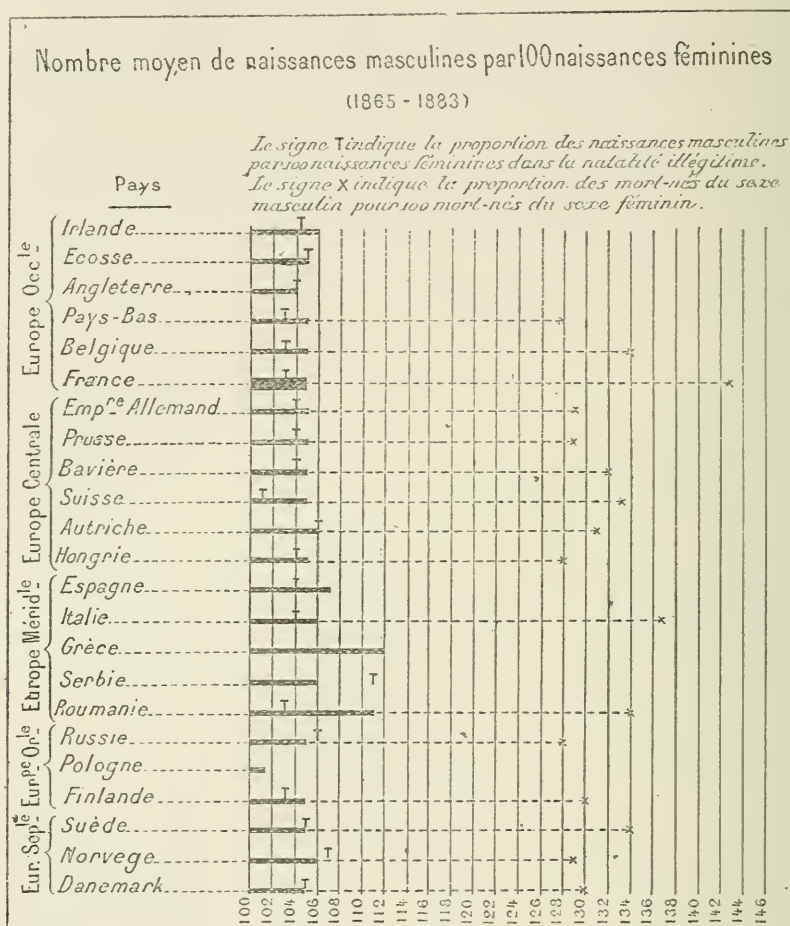 Nombre moyen de naissances masculines par 100 naissances féminines
(1865 - 1883)
Le signe T indique la proportion des naissances masculines
par 100 naissances féminines dans la natalité illégitime.
Le signe X indique la proportion des mort-nés du sexe
masculin pour 100 mort-nés du sexe féminin.
Pays
Europe Occ.le
Irlande
Ecosse
Angleterre
Pays-Bas
Belgique
France
Europe Centrale
Emp.re Allemand
Prusse
Bavière
Suisse
Autriche
Hongrie
Europe Mérid.le
Espagne
Italie
Grèce
Serbie
Roumanie
Eur.pe Or.le
Russie
Pologne
Finlande
Eur. Sep.le
Suède
Norvege
Danemark
100 102 104 106 108 110 112 114 116 118 120 122 124 126 128 130 132 134 136 138 140 142 144 146